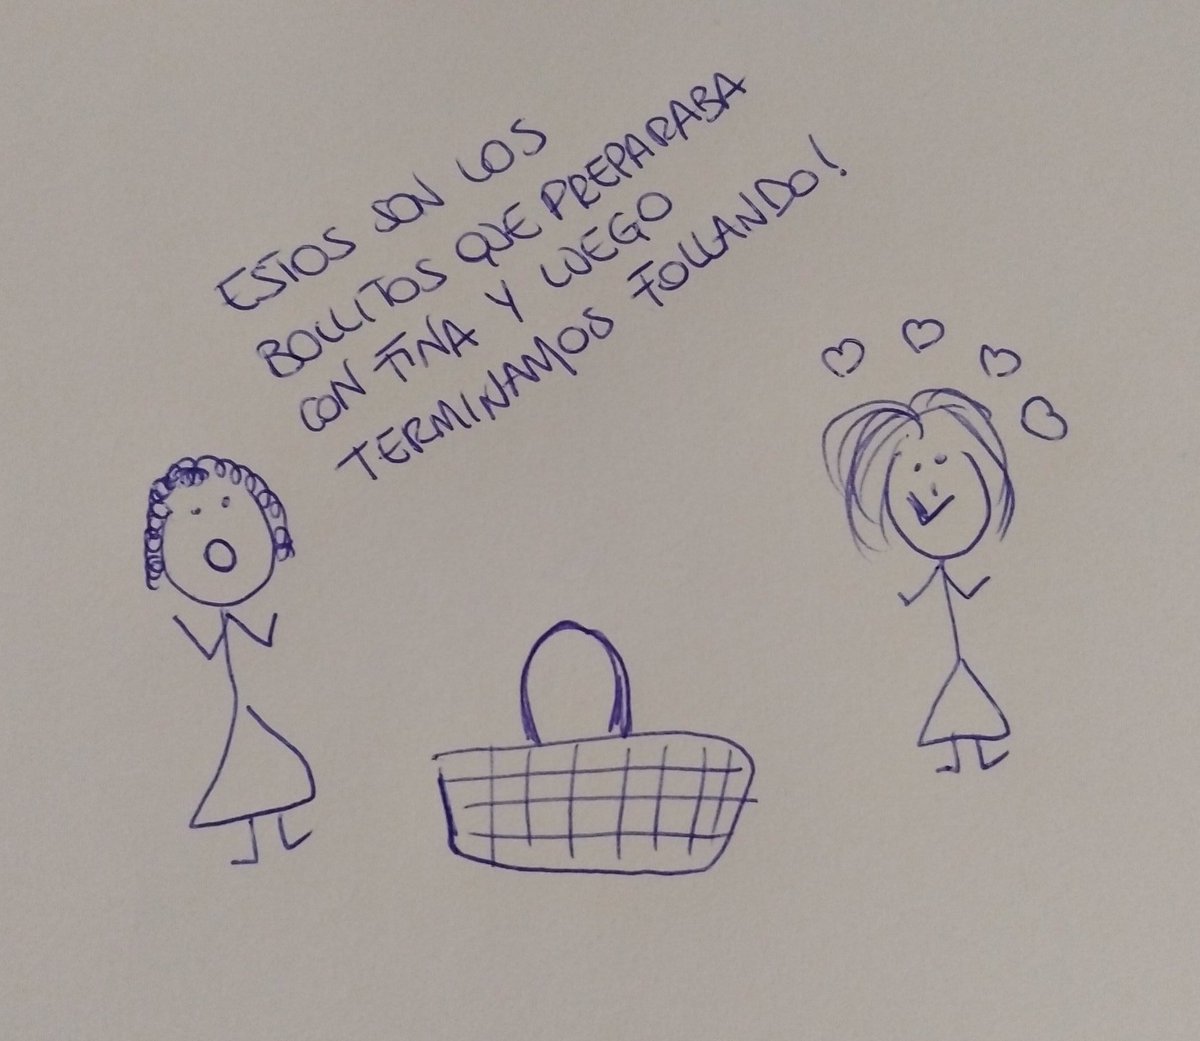 ESTOS SON LOS
BOLLITOS QUE PREPARABA
CON TINA Y LUEGO
TERMINAMOS FOLLANDO!